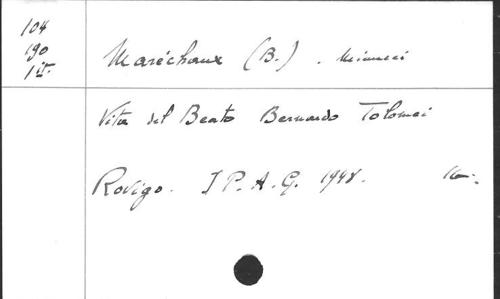 104
190
1 it.
Maréchaux (B.). Minucci
Vita del Beato Bernardo Tolomei
Rovigo. I P. A. G. 1948. 16-.